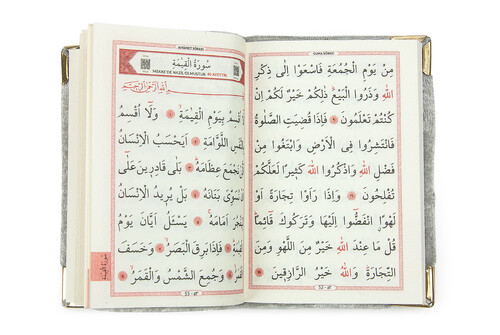 CUMA SÛRESİ
مِنْ يَوْمِ الْجُمُعَةِ فَاسْعَوْا اِلٰى ذِكْرِ
اللّٰهِ وَذَرُوا الْبَيْعَ ذٰلِكُمْ خَيْرٌ لَكُمْ اِنْ
كُنْتُمْ تَعْلَمُونَ فَاِذَا قُضِيَتِ الصَّلٰوةُ
فَانْتَشِرُوا فِى الْاَرْضِ وَابْتَغُوا مِنْ
فَضْلِ اللّٰهِ وَاذْكُرُوا اللّٰهَ كَثِيرًا لَعَلَّكُمْ
تُفْلِحُونَ وَاِذَا رَاَوْا تِجَارَةً اَوْ
لَهْوًا انْفَضُّوا اِلَيْهَا وَتَرَكُوكَ قَائِمًا
قُلْ مَا عِنْدَ اللّٰهِ خَيْرٌ مِنَ اللَّهْوِ وَمِنَ
التِّجَارَةِ وَاللّٰهُ خَيْرُ الرَّازِقِينَ
52 - ٥٢
KIYAMET SÛRESİ
سُورَةُ الْقِيٰمَةِ
MEKKE'DE NAZİL OLMUŞTUR. 40 AYETTİR.
اُقْسِمُ بِيَوْمِ الْقِيٰمَةِ وَلَا اُقْسِمُ
اللَّوَّامَةِ اَيَحْسَبُ الْاِنْسَانُ
نَجْمَعَ عِظَامَهُ بَلٰى قَادِرِينَ عَلٰى
نُسَوِّىَ بَنَانَهُ بَلْ يُرِيدُ الْاِنْسَانُ
اَمَامَهُ يَسْئَلُ اَيَّانَ يَوْمُ
فَاِذَا بَرِقَ الْبَصَرُ وَخَسَفَ
وَجُمِعَ الشَّمْسُ وَالْقَمَرُ
53 - ٥٣